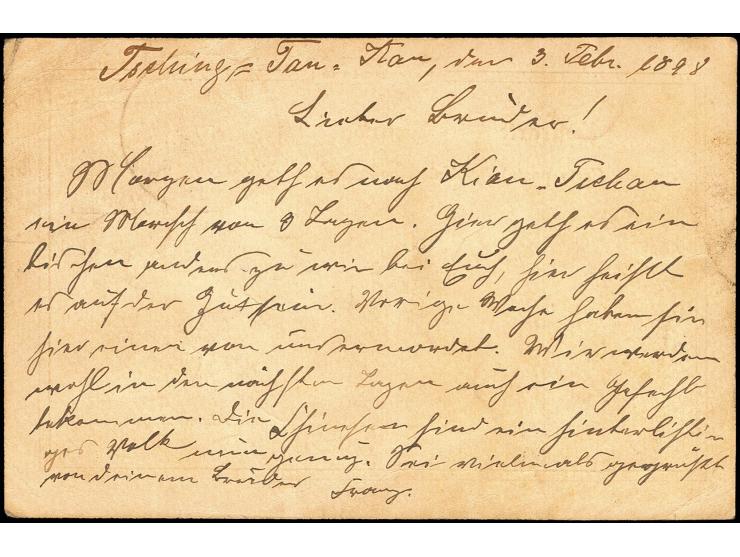 Tsching = Tau = Kau, den 3. Febr. 1898
Lieber Brüder!
Morgen geth es nach Kiau = Tschau
ein Marsch von 3 Tagen. Hier geth es ein
bischen anders zu wie bei Euch, hier heihst
es auf der Hutsein. Vorige Woche haben sie
hier einen von uns ermordet. Wir werden
wohl in den nächsten Tagen auch ein Gefecht
bekommen. Die Chinesen sind ein hinterlisti=
ges Volk nun genug. Sei vielmals gegrüßt
von deinem Brüder Franz.